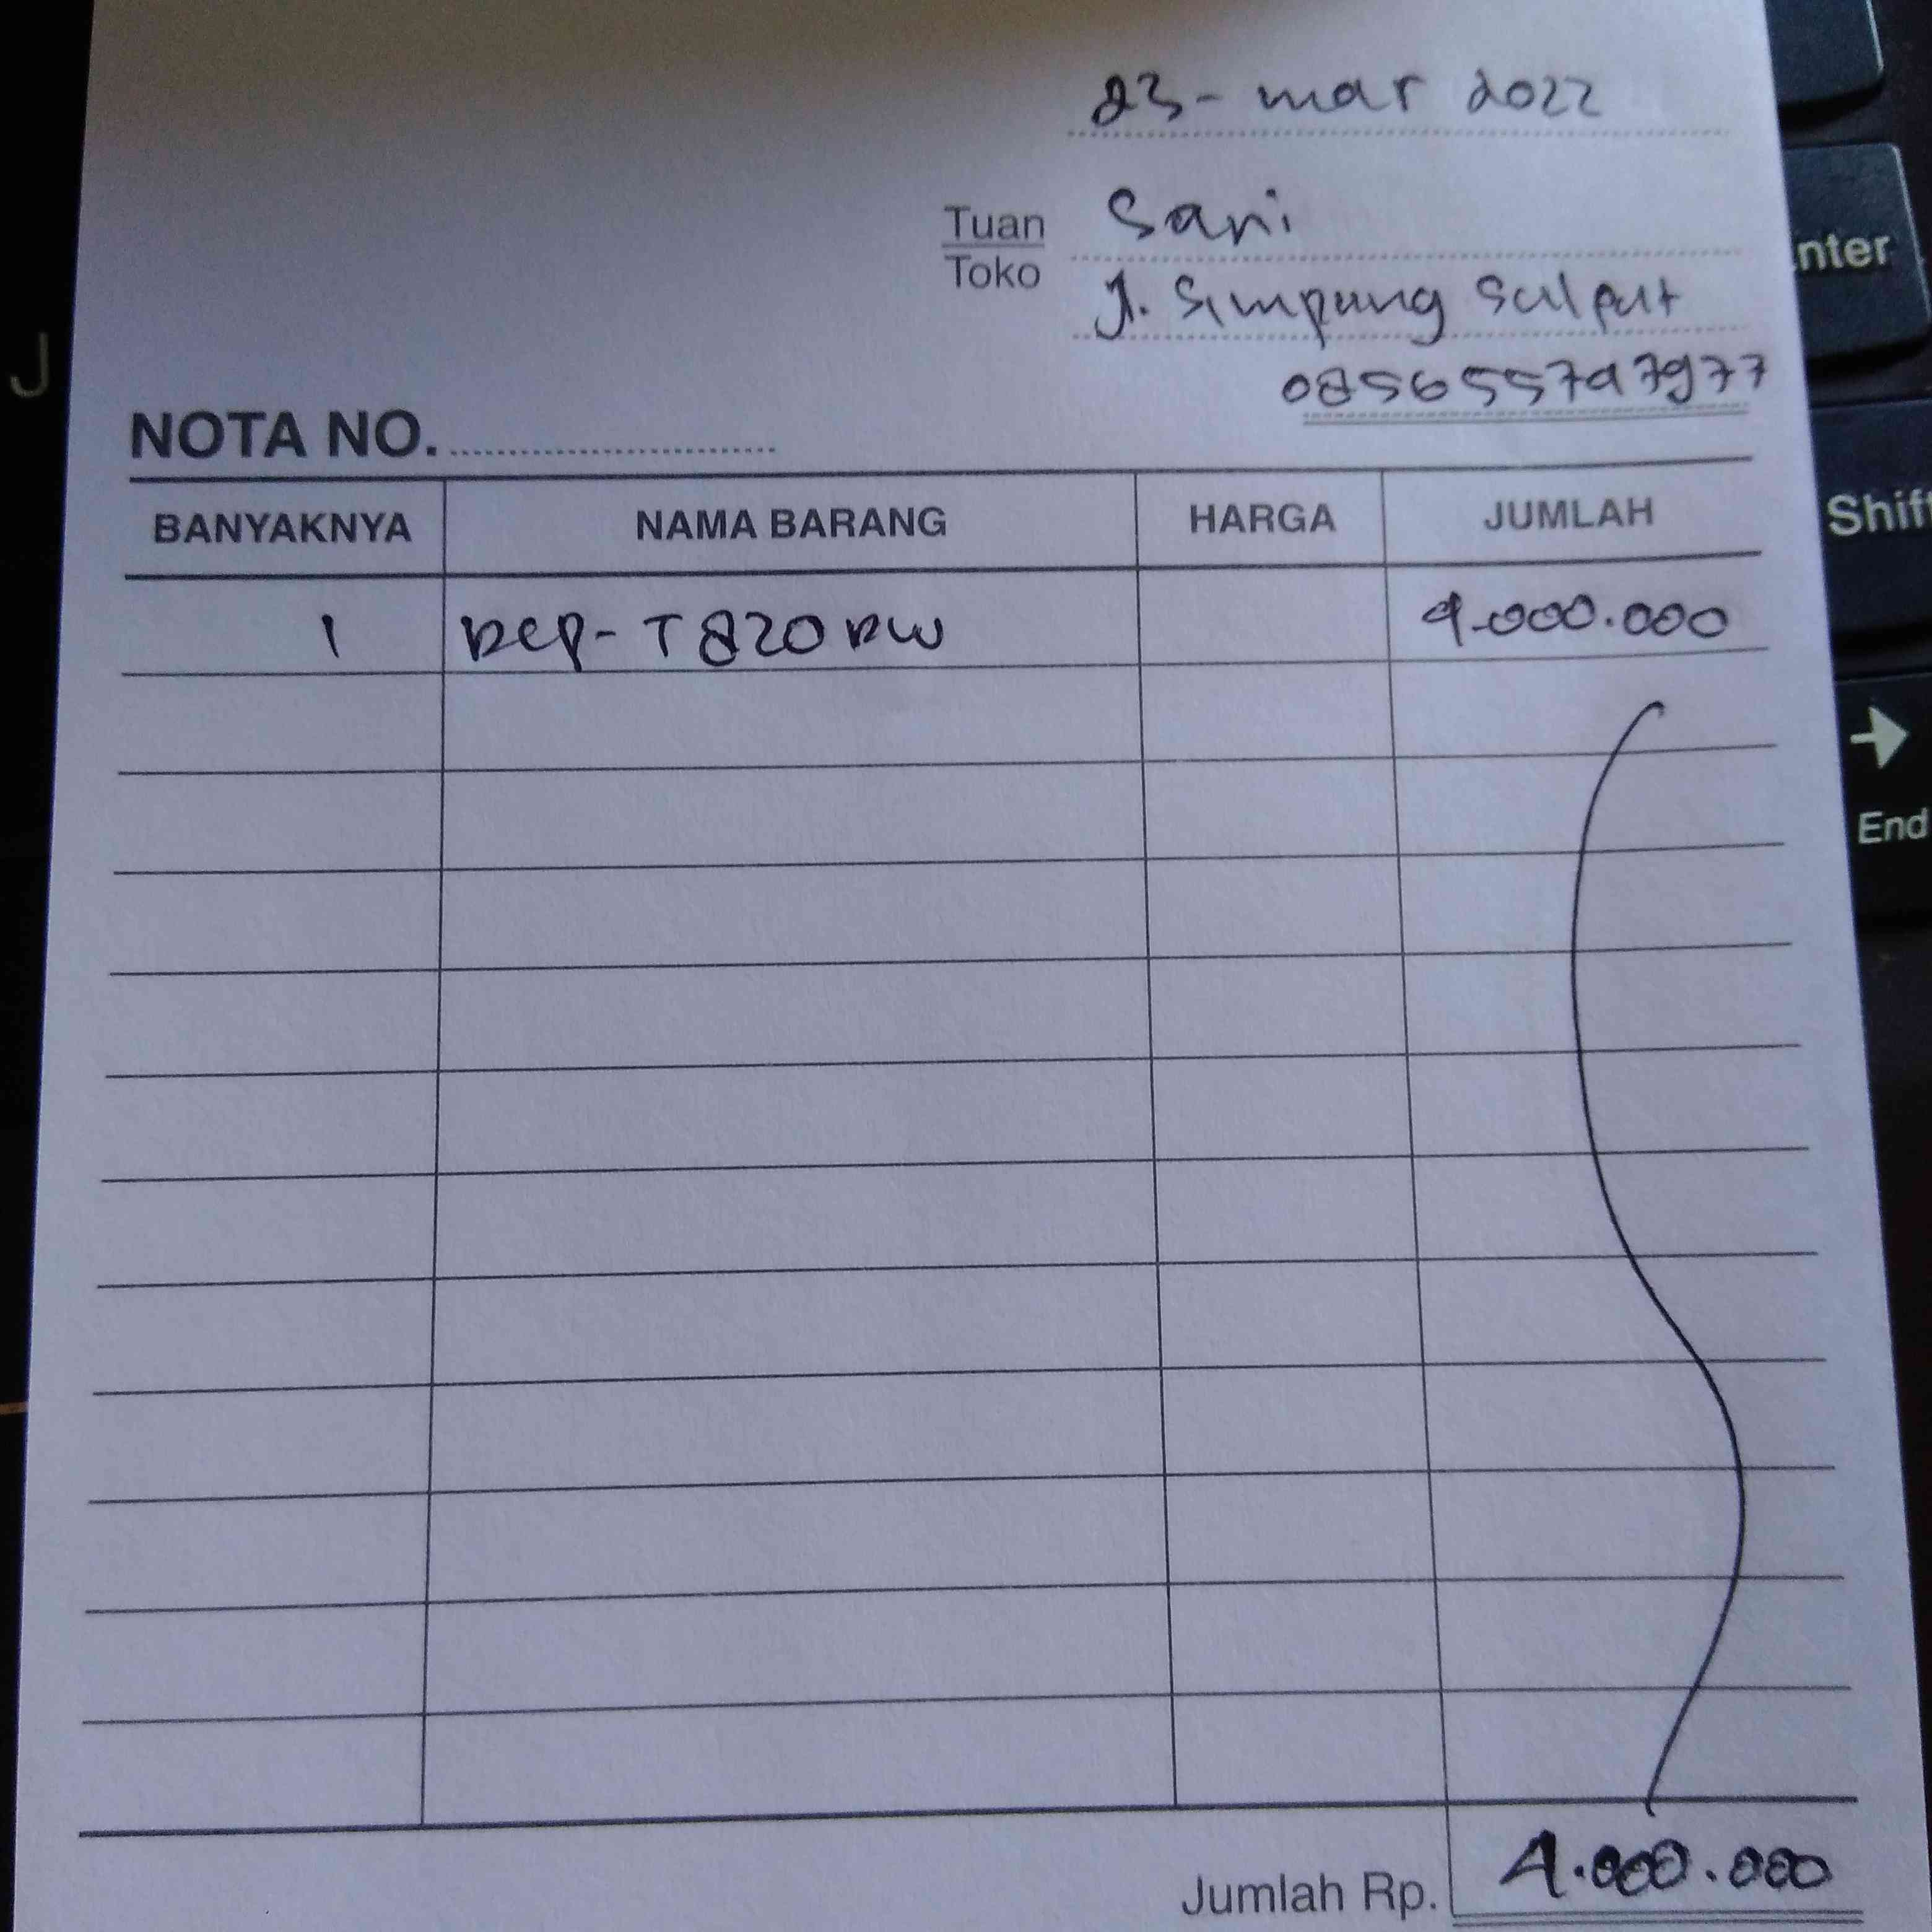 23 - mar 2022
Tuan Sari
Toko Jl. Simpang Sulput
NOTA NO.
BANYAKNYA NAMA BARANG HARGA JUMLAH
1 DCP - T820 DW 4.000.000
Jumlah Rp. 4.000.000
nter
Shif
End
J